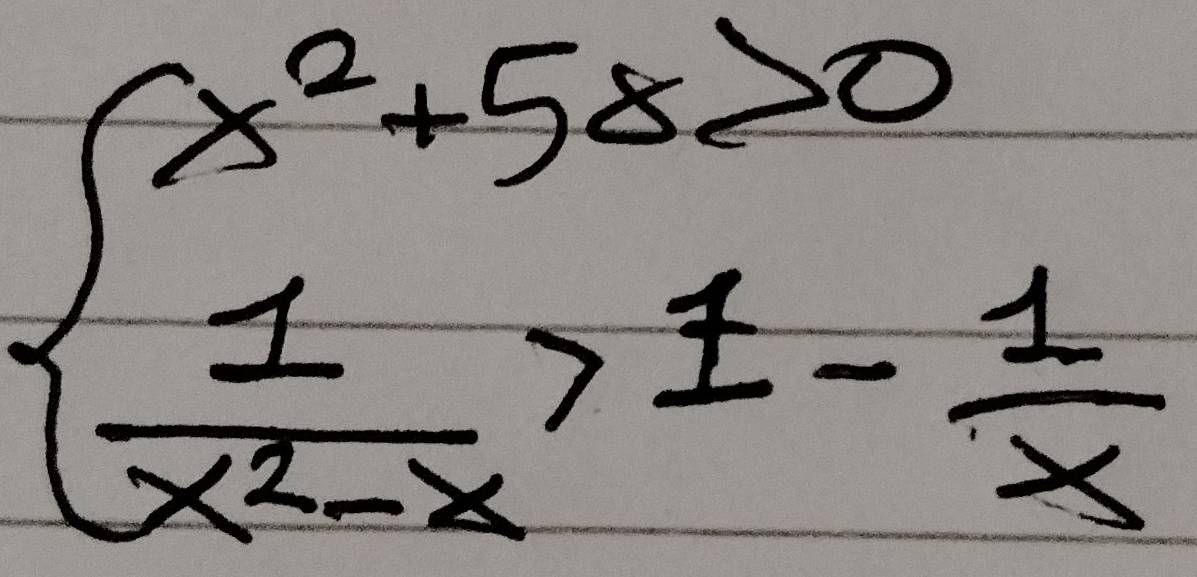 { x² + 5x > 0
1/(x² - x) > 1 - 1/x